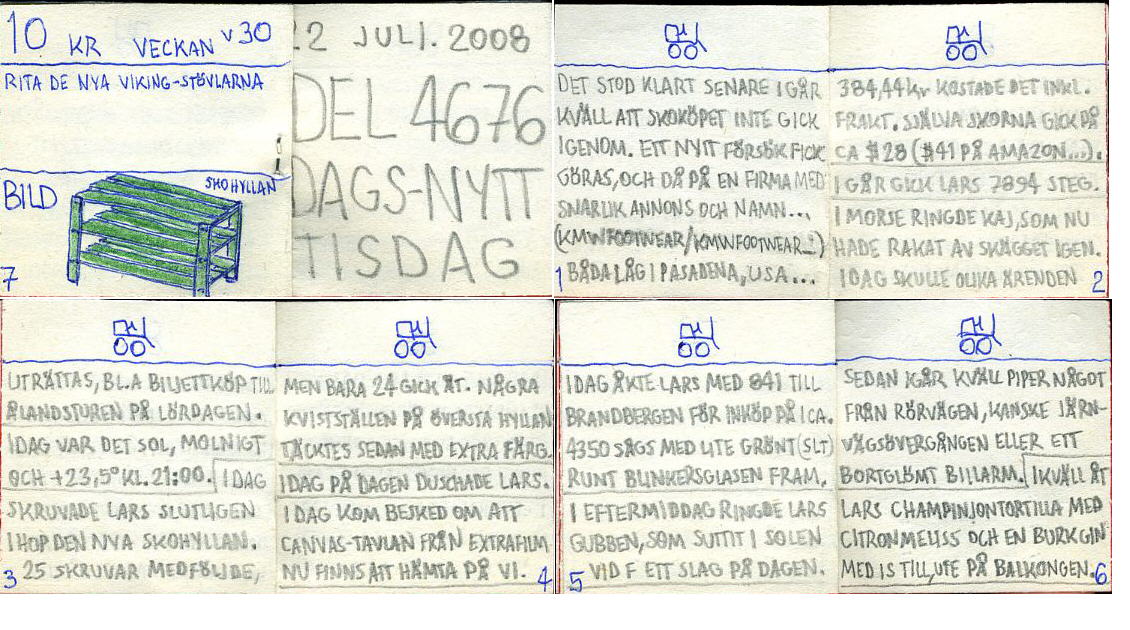 10 KR VECKAN V30
RITA DE NYA VIKING-STÖVLARNA
BILD
SKOHYLLAN
7
22 JULI. 2008
DEL 4676
DAGS-NYTT
TISDAG
DET STOD KLART SENARE IGÅR
KVÄLL ATT SKOKÖPET INTE GICK
IGENOM. ETT NYTT FÖRSÖK FICK
GÖRAS, OCH DÅ PÅ EN FIRMA MED
SNARLIK ANNONS OCH NAMN...
(KMWFOOTWEAR/KMWFOOTWEAR_)
BÅDA LÅG I PASADENA, USA...
1
384,44kr KOSTADE DET INKL.
FRAKT. SJÄLVA SKORNA GICK PÅ
CA $28 ($41 PÅ AMAZON...).
IGÅR GICK LARS 7894 STEG.
I MORSE RINGDE KAJ, SOM NU
HADE RAKAT AV SKÄGGET IGEN.
IDAG SKULLE OLIKA ÄRENDEN
2
UTRÄTTAS, BL.A BILJETTKÖP TILL
ÅLANDSTUREN PÅ LÖRDAGEN.
IDAG VAR DET SOL, MOLNIGT
OCH +23,5° KL. 21:00. IDAG
SKRUVADE LARS SLUTLIGEN
IHOP DEN NYA SKOHYLLAN.
25 SKRUVAR MEDFÖLJDE,
3
MEN BARA 24 GICK ÅT. NÅGRA
KVISTSTÄLLEN PÅ ÖVERSTA HYLLAN
TÄCKTES SEDAN MED EXTRA FÄRG.
IDAG PÅ DAGEN DUSCHADE LARS.
IDAG KOM BESKED OM ATT
CANVAS-TAVLAN FRÅN EXTRAFILM
NU FINNS ATT HÄMTA PÅ VI.
4
IDAG ÅKTE LARS MED 841 TILL
BRANDBERGEN FÖR INKÖP PÅ ICA.
4350 SÅGS MED LITE GRÖNT (SLT)
RUNT BLINKERSGLASEN FRAM.
I EFTERMIDDAG RINGDE LARS
GUBBEN, SOM SUTTIT I SOLEN
VID F ETT SLAG PÅ DAGEN.
5
SEDAN IGÅR KVÄLL PIPER NÅGOT
FRÅN RÖRVÄGEN, KANSKE JÄRN-
VÄGSÖVERGÅNGEN ELLER ETT
BORTGLÖMT BILLARM. IKVÄLL ÅT
LARS CHAMPINJONTORTILLA MED
CITRONMELISS OCH EN BURK GIN
MED IS TILL, UTE PÅ BALKONGEN.
6